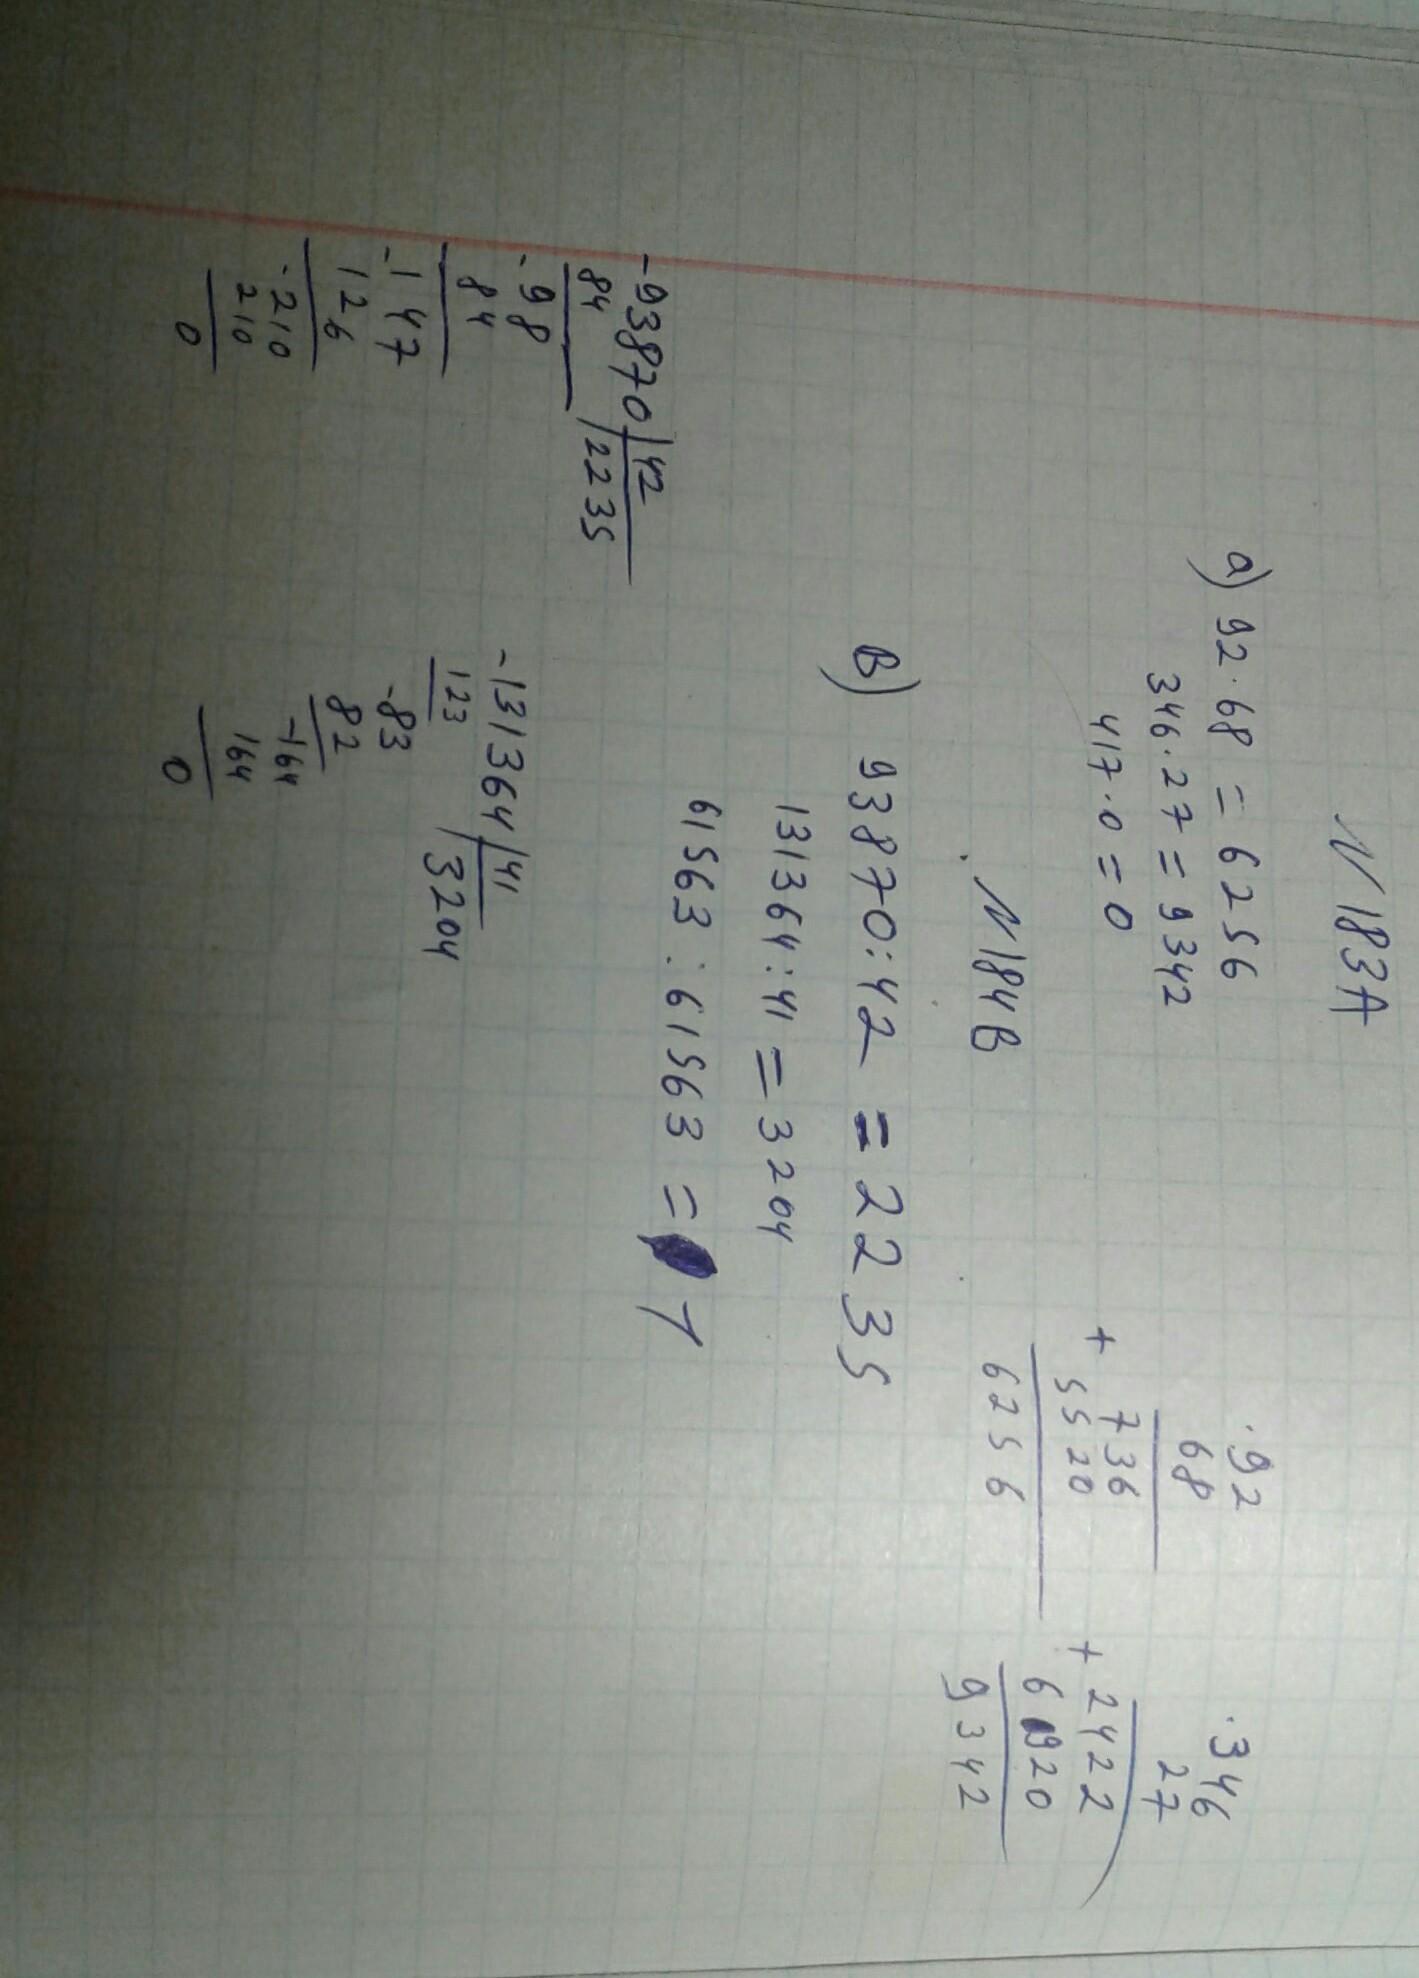 N 183A
a) 92·68 = 6256
346·27 = 9342
417·0 = 0
·92
68
736
+
5520
6256
·346
27
+2422
6920
9342
N 184B
B) 93870:42 = 2235
131364:41 = 3204
61563:61563 = 1
-93870|42
84
2235
-98
84
-147
126
-210
210
0
-131364|41
123
3204
-83
82
-164
164
0